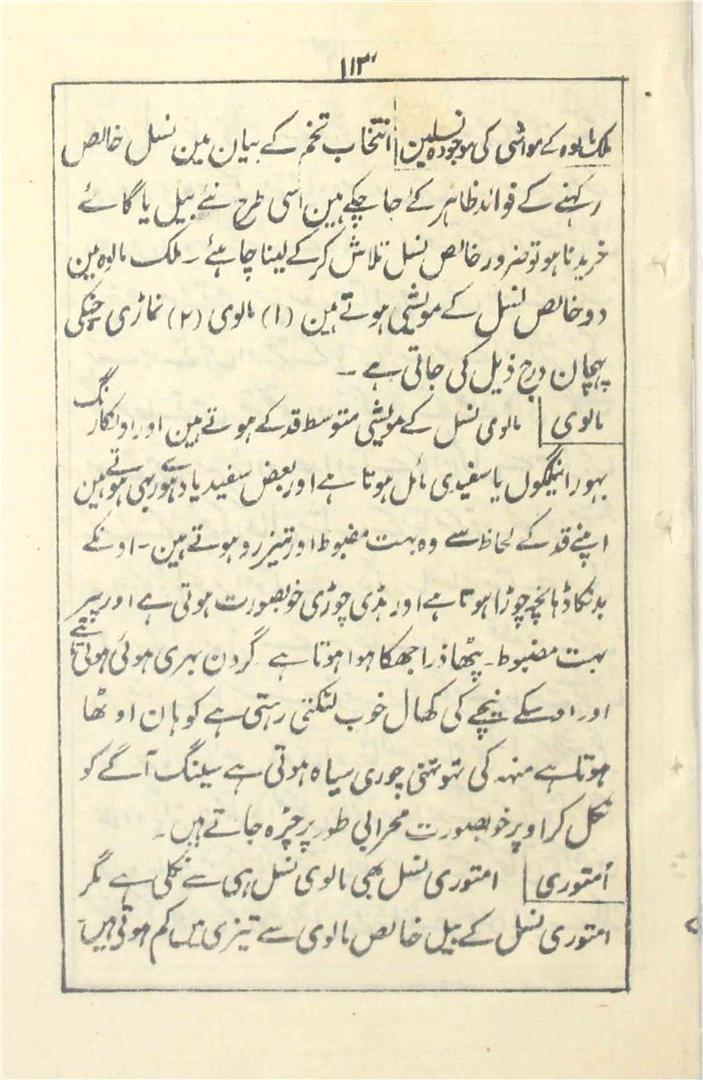 ۱۱۳
ملک مالوہ کے مواشی کی موجودہ نسلین انتخاب تخم کے بیان مین نسل خالص
رکہنے کے فوائد ظاہر کئے جا چکے ہین اسی طرح نئے بیل یا گائے
خریدنا ہو تو ضرور خالص نسل تلاش کرکے لینا چاہئے ۔ ملک مالوہ مین
دو خالص نسل کے مویشی ہوتے ہین (۱) مالوی (۲) نماڑی جنکی
پہچان درج ذیل کی جاتی ہے ۔
مالوی مالوی نسل کے مویشی متوسط قد کے ہوتے ہین اور اونکا رنگ
بہورا نیلگوں یا سفیدی مائل ہوتا ہے اور بعض سفید یا دہورے بہی ہوتے ہین
اپنے قد کے لحاظ سے وہ بہت مضبوط اور تیز رو ہوتے ہین ۔ اونکے
بدنکا ڈہانچہ چوڑا ہوتا ہے اور ہڈی چوڑی خوبصورت ہوتی ہے اور پیر
بہت مضبوط ۔ پٹھا ذرا جھکا ہوا ہوتا ہے گردن بہری ہوئی ہوتی ہے
اور اوسکے نیچے کی کھال خوب لٹکتی رہتی ہے کوہان اوٹھا
ہوتا ہے منہہ کی تہوتہنی چوڑی سیاہ ہوتی ہے سینگ آگے کو
نکل کر اوپر خوبصورت محرابی طور پر چڑہ جاتے ہیں ۔
اُمتوری امتوری نسل بھی مالوی نسل ہی سے نکلی ہے مگر
امتوری نسل کے بیل خالص مالوی سے تیزی میں کم ہوتے ہیں